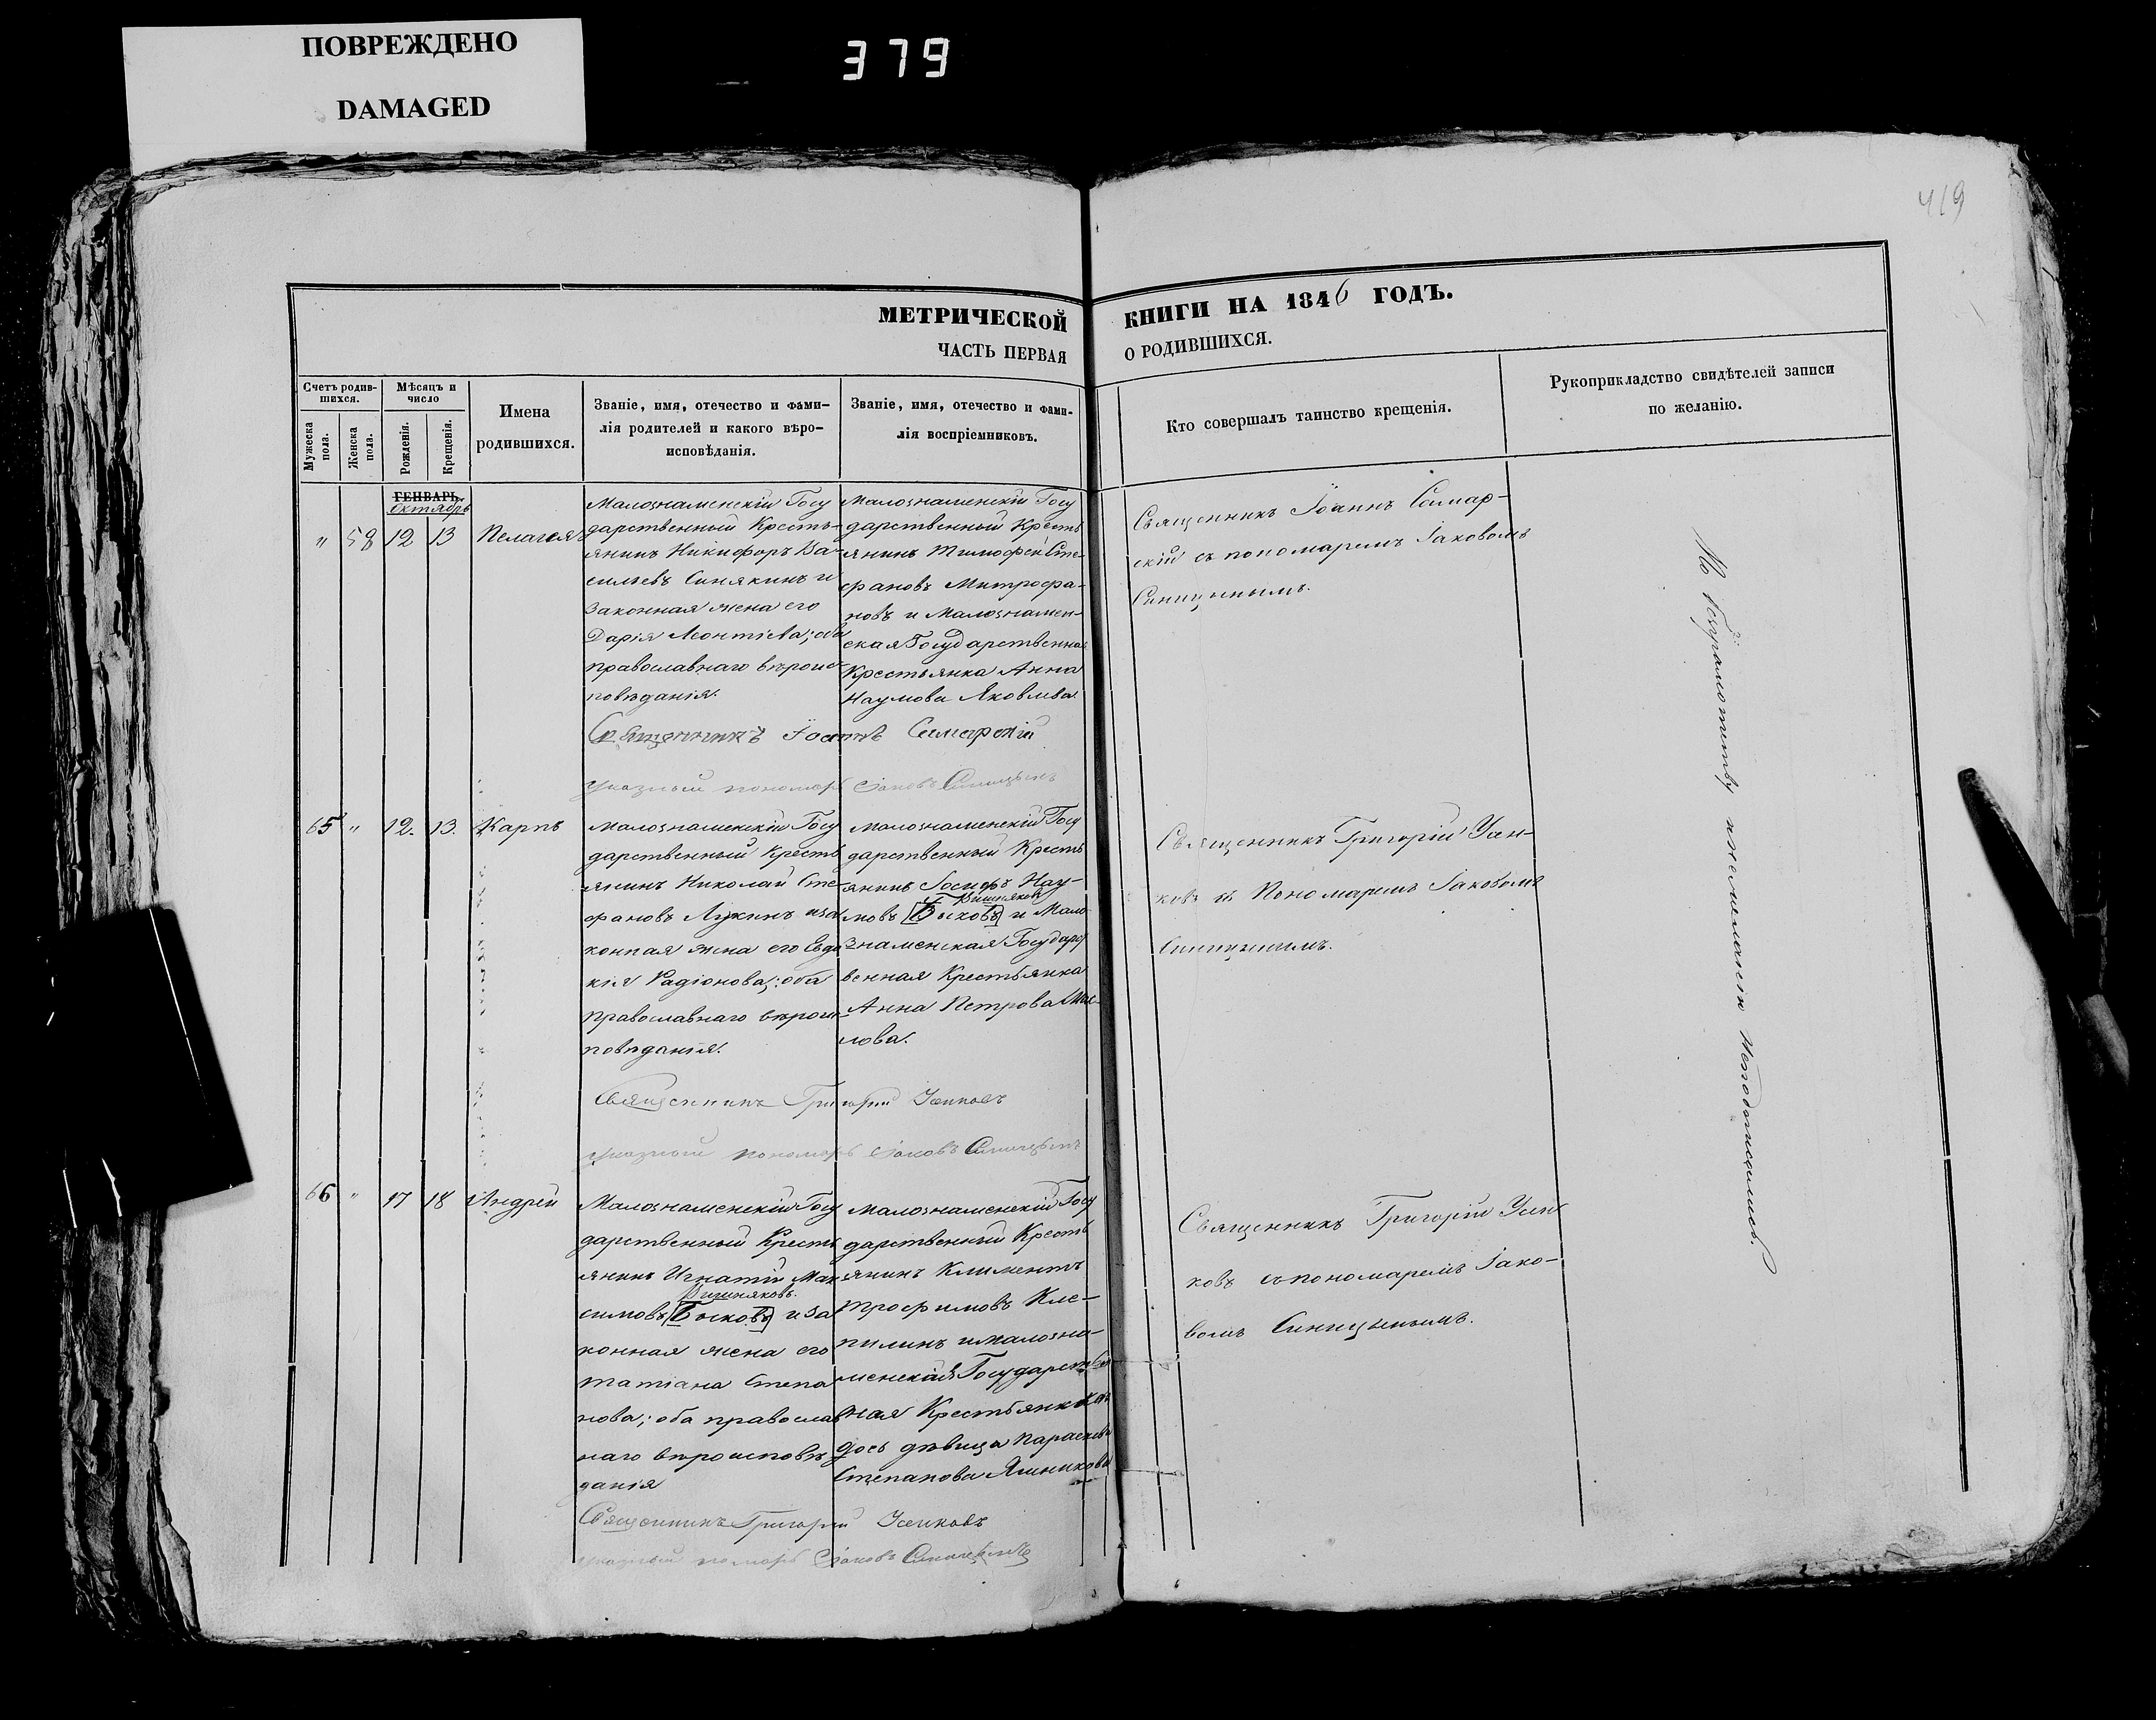 ПОВРЕЖДЕНО
DAMAGED
379
419
МЕТРИЧЕСКОЙ КНИГИ НА 1846 ГОДЪ.
ЧАСТЬ ПЕРВАЯ О РОДИВШИХСЯ.
Счетъ родив-
шихся.
Мужеска
пола.
Женска
пола.
Мѣсяцъ и
число
Рожденія.
Крещенія.
Имена
родившихся.
Званіе, имя, отечество и фами-
лія родителей и какого вѣро-
исповѣданія.
Званіе, имя, отечество и фами-
лія воспріемниковъ.
Кто совершалъ таинство крещенія.
Рукоприкладство свидѣтелей записи
по желанію.
ГЕНВАРЬ.
Октябрь
" 58 12 13 Пелагея
Малознаменскій Госу
дарственный Кресть-
янинъ Никифоръ Ва-
сильевъ Синякинъ и
Законная жена его
Дарія Леонтіева; оба
православнаго вѣроис-
повѣданія.
Малознаменскій Госу
дарственный Кресть
янинъ Тимофей Сте-
фановъ Митрофа-
новъ и Малознамен-
ская Государственная
Крестьянка Анна
Наумова Яковлева.
Священникъ Іоаннъ Самар-
скій съ пономаремъ Іаковомъ
Синицынымъ.
Священникъ Іоаннъ Самарскій
Указный пономарь Іаковъ Синицынъ
65 " 12. 13. Карпъ
Малознаменскій Госу
дарственный Кресть
янинъ Николай Сте-
фановъ Лукинъ иза
конная жена его Евдо
кія Радіонова; оба
православнаго вѣроис-
повѣданія.
Малознаменскій Госу
дарственный Кресть
янинъ Іосифъ Нау-
Вишняковъ
мовъ [Быковъ] и Мало
знаменская Государст
венная Крестьянка
Анна Петрова
лова.
Священникъ Григорій Усен-
ковъ съ Пономаремъ Іаковомъ
Синицынымъ.
Священникъ Григорій Усенковъ
Указный пономарь Іаковъ Синицынъ
66 " 17 18 Андрей
Малознаменскій Госу
дарственный Кресть
янинъ Игнатій Мак
Вишняковъ.
симовъ [Быковъ] и за
конная жена его
татіана Степа
нова; оба православ
наго вѣроисповѣ
данія
Малознаменскій Госу
дарственный Кресть
янинъ Климентъ
Трофимовъ Кле-
пилинъ и малозна-
менская Государствен
ная Крестьянская
дочь дѣвица Параскева
Степанова
Священникъ Григорій Усен
ковъ съ пономаремъ Іако-
вомъ Синицынымъ.
Священникъ Григорій Усенковъ
Указный пономарь Іаковъ Синицынъ
По безграмотству